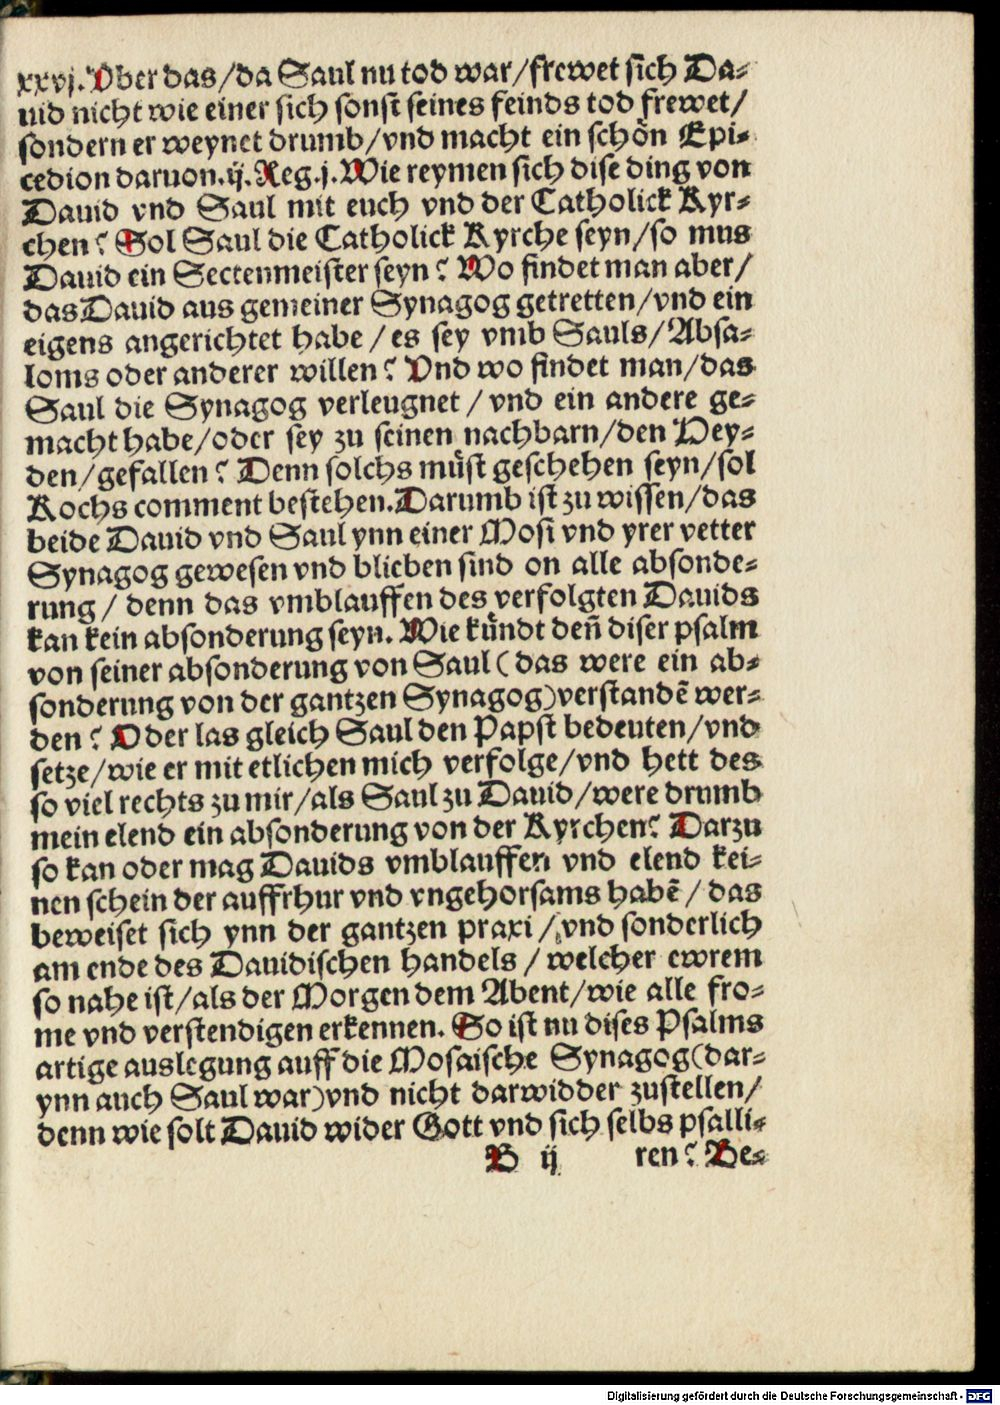 xxvj. Vber das/da Saul nu tod war/frewet sich Da⸗
uid nicht wie einer sich sonst seines feinds tod frewet/
sondern er weynet drumb/vnd macht ein schön Epi⸗
cedion daruon.ij. Reg.j. Wie reymen sich dise ding von
Dauid vnd Saul mit euch vnd der Catholick Kyr⸗
chen? Sol Saul die Catholick Kyrche seyn/so mus
Dauid ein Sectenmeister seyn? Wo findet man aber/
das Dauid aus gemeiner Synagog getretten/vnd ein
eigens angerichtet habe/es sey vmb Sauls/Absa⸗
loms oder anderer willen? Vnd wo findet man/das
Saul die Synagog verleugnet/vnd ein andere ge⸗
macht habe/oder sey zu seinen nachbarn/den Hey⸗
den/gefallen? Denn solchs müst geschehen seyn/sol
Kochs comment bestehen. Darumb ist zu wissen/das
beide Dauid vnd Saul ynn einer Mosi vnd yrer vetter
Synagog gewesen vnd blieben sind on alle absonde⸗
rung/denn das vmblauffen des verfolgten Dauids
kan kein absonderung seyn. Wie kündt deñ diser psalm
von seiner absonderung von Saul (das were ein ab⸗
sonderung von der gantzen Synagog)verstandē wer⸗
den? Oder las gleich Saul den Papst bedeuten/vnd
setze/wie er mit etlichen mich verfolge/vnd hett des
so viel rechts zu mir/als Saul zu Dauid/were drumb
mein elend ein absonderung von der Kyrchen? Darzu
so kan oder mag Dauids vmblauffen vnd elend kei⸗
nen schein der auffrhur vnd vngehorsams habē/das
beweiset sich ynn der gantzen praxi/vnd sonderlich
am ende des Dauidischen handels/welcher ewrem
so nahe ist/als der Morgen dem Abent/wie alle fro⸗
me vnd verstendigen erkennen. So ist nu dises Psalms
artige auslegung auff die Mosaische Synagog(dar⸗
ynn auch Saul war)vnd nicht darwidder zustellen/
denn wie solt Dauid wider Gott vnd sich selbs psalli⸗
B ij ren? Be⸗
Digitalisierung gefördert durch die Deutsche Forschungsgemeinschaft - DFG